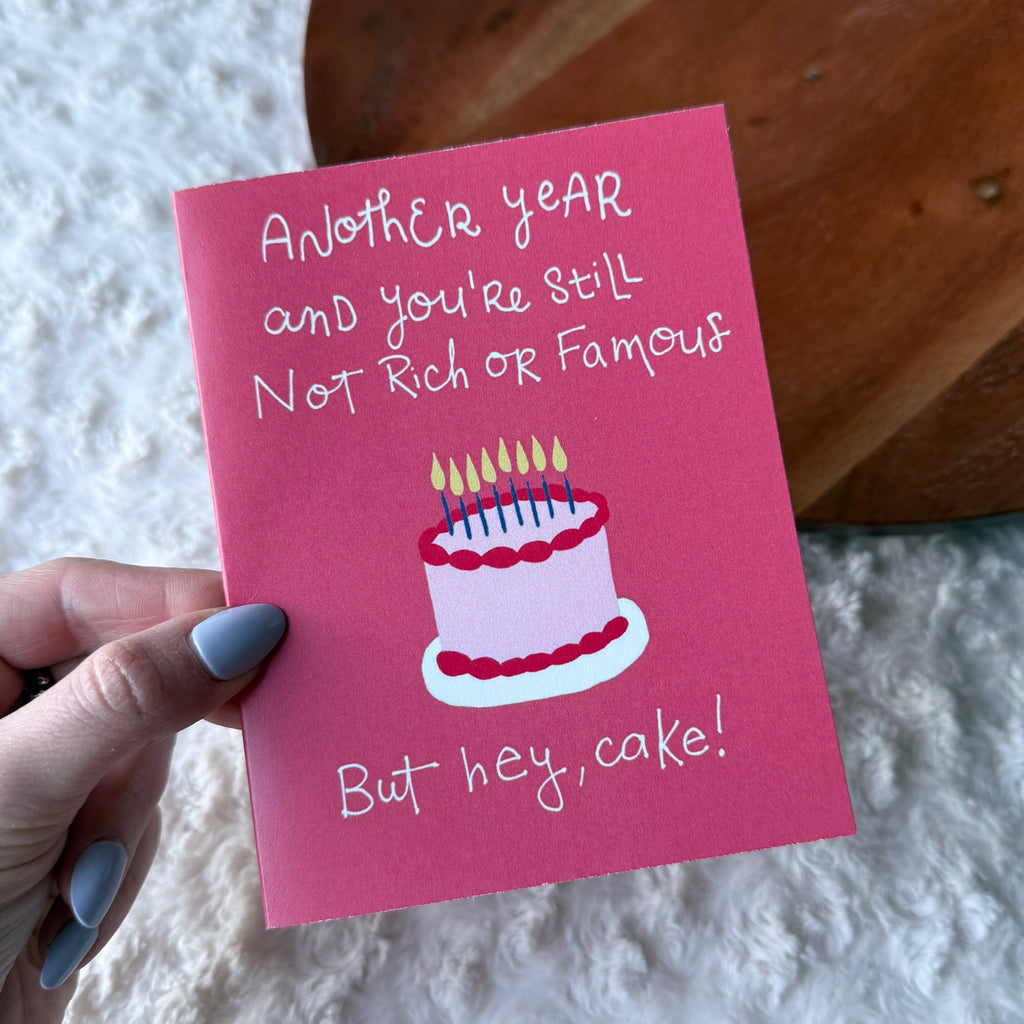 ANothER yEAR
anD you'Re StiLL
Not Rich oR Famous
But hey, cake!